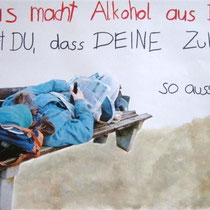 as macht Alkohol aus
t DU, dass DEINE Zu
so aus